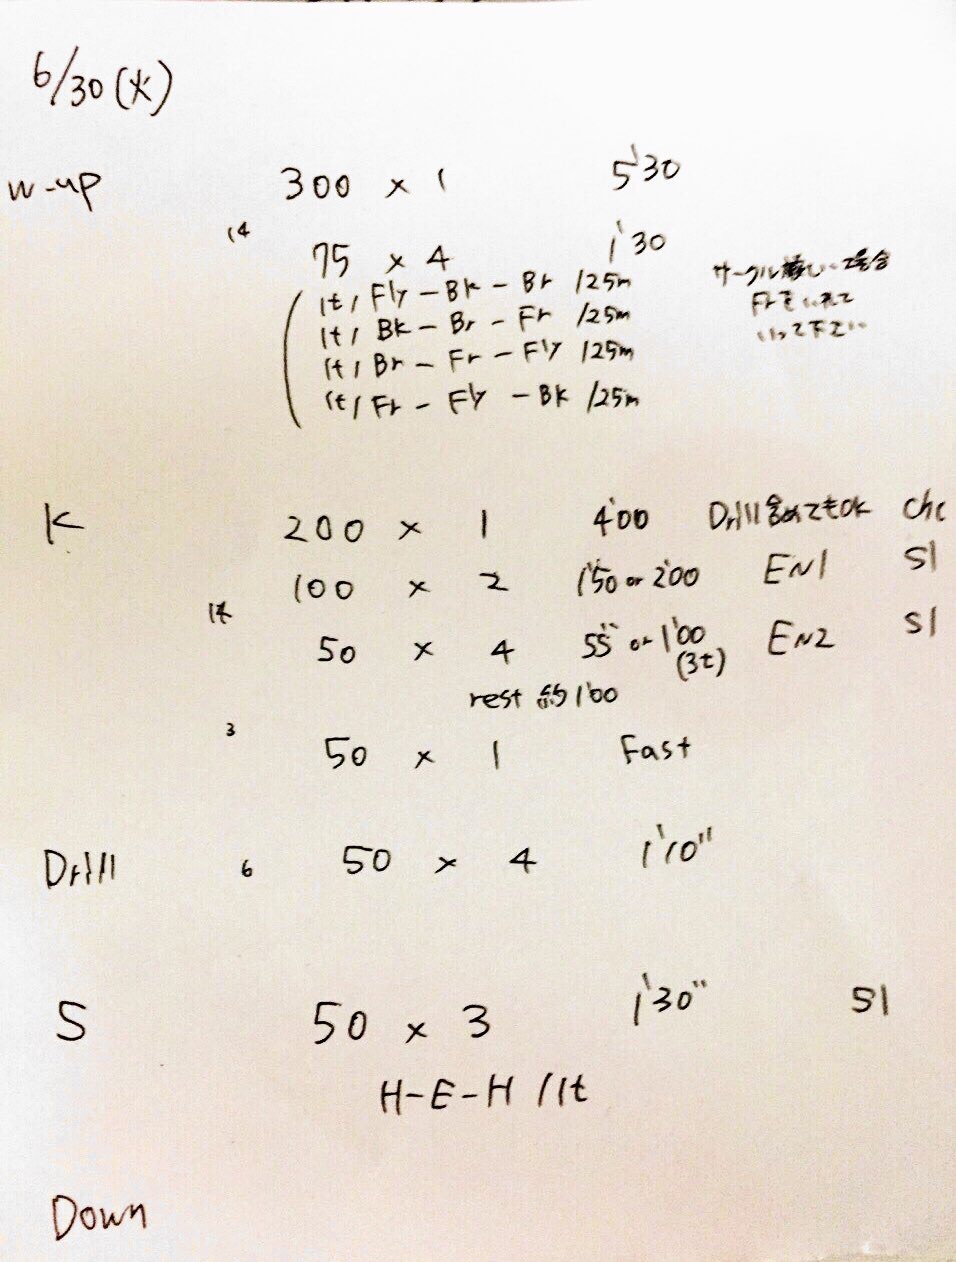 6/30 (火)
W-up 300 × 1 5'30
14
75 × 4 1'30
1t, Fly - Bk - Br /25m
1t, Bk - Br - Fr /25m
1t, Br - Fr - Fly /25m
1t, Fr - Fly - Bk /25m
サークル厳しい場合
Frをいれて
いって下さい
K 200 × 1 4'00 Drill含めてもOK Chc
100 × 2 1'50 or 2'00 EN1 S1
50 × 4 55" or 1'00 (3t) EN2 S1
rest 約1'00
3 50 × 1 Fast
Drill 6 50 × 4 1'10"
S 50 × 3 1'30" S1
H-E-H /1t
Down